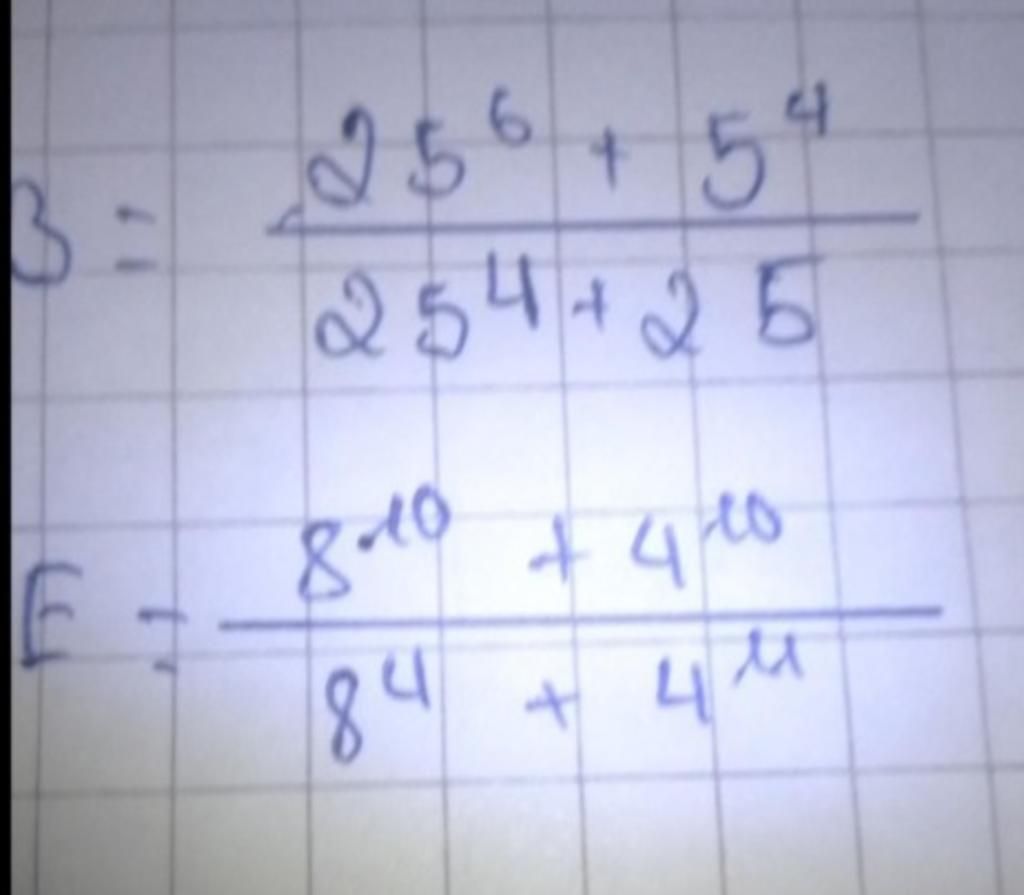 B = (25⁶ + 5⁴) / (25⁴ + 25)
E = (8¹⁰ + 4¹⁰) / (8⁴ + 4¹¹)